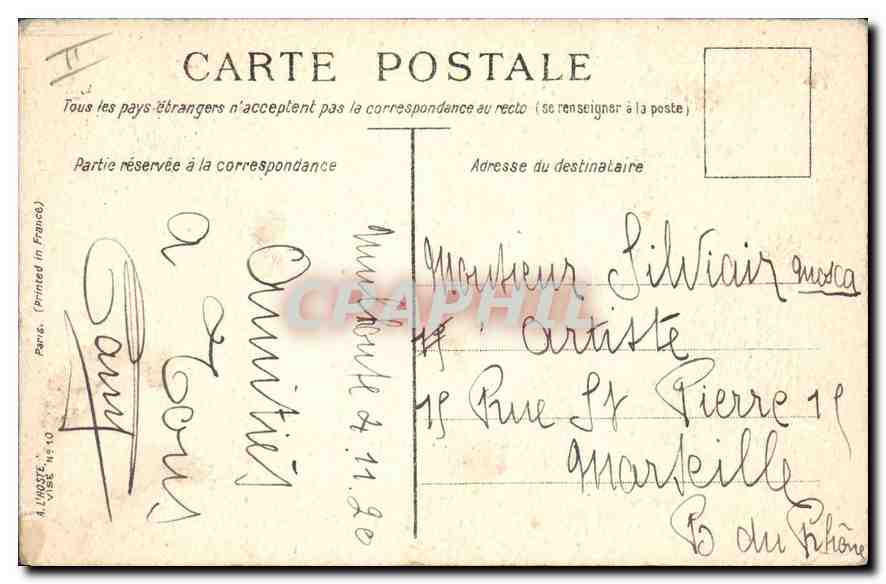 CARTE POSTALE
Tous les pays étrangers n'acceptent pas la correspondance au recto (se renseigner à la poste)
Partie réservée à la correspondance
Adresse du destinataire
4.11.20
Amitiés
a Tous
Monsieur Silviair Mosca
Artiste
15 Rue St Pierre 15
Marseille
B du Rhône
A. L'HOSTE, Paris. (Printed in France)
VISÉ No 10
CRAPHIL